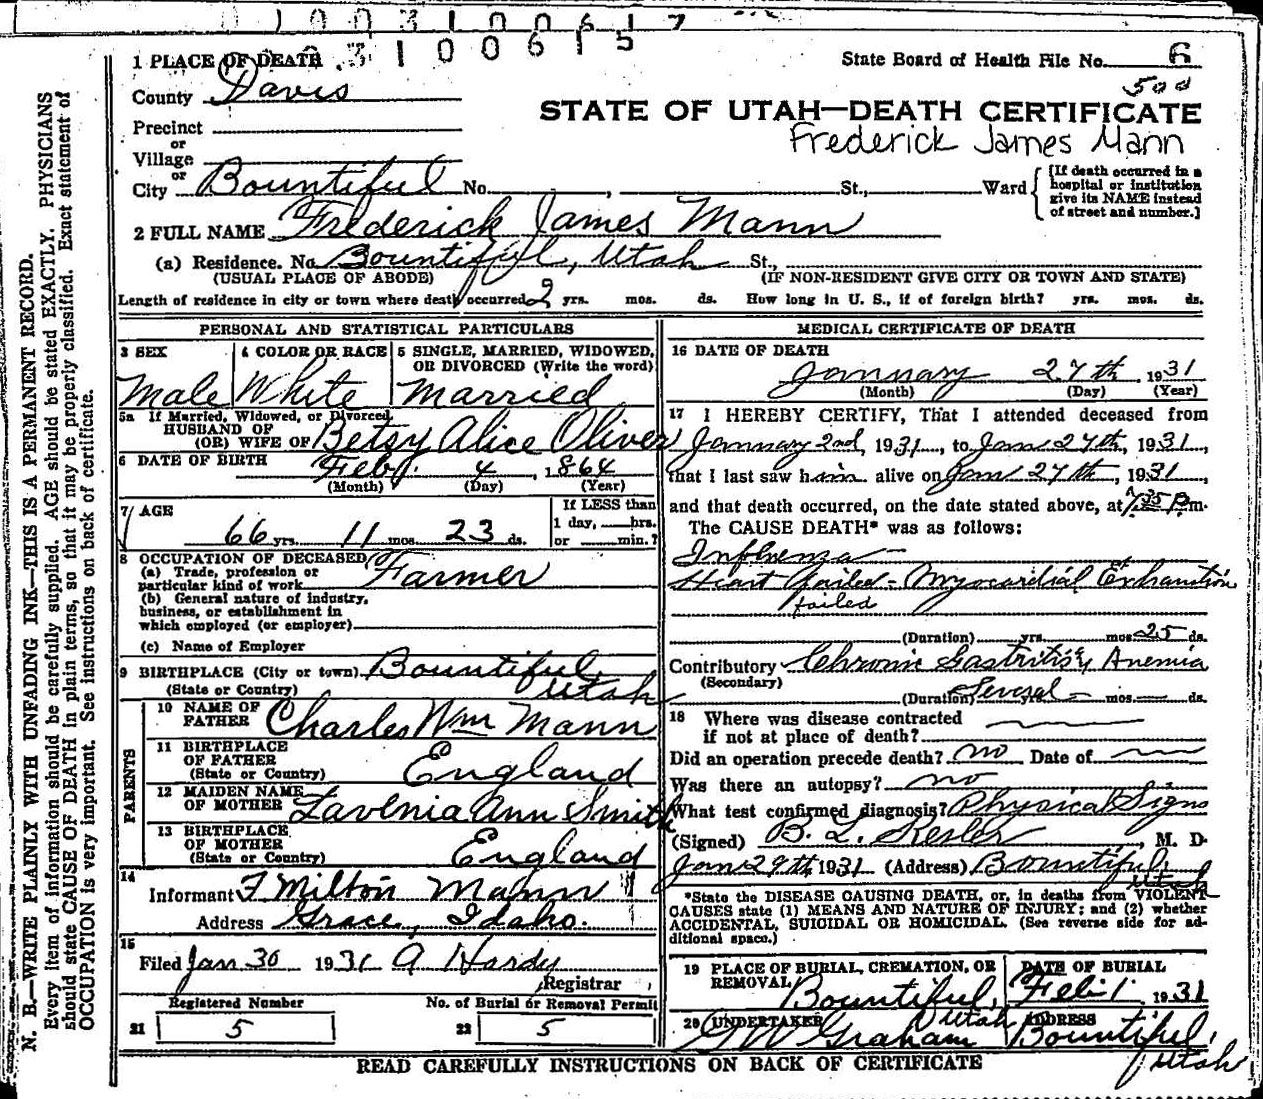 0 1 0 0 3 1 0 0 6 1 7
3 1 0 0 6 1 5
1 PLACE OF DEATH
State Board of Health File No. 6
County Davis
500
STATE OF UTAH—DEATH CERTIFICATE
Precinct
Frederick James Mann
or
Village
or
City Bountiful No. , St., Ward
[If death occurred in a hospital or institution give its NAME instead of street and number.]
2 FULL NAME Frederick James Mann
(a) Residence. No. Bountiful, Utah St.,
(USUAL PLACE OF ABODE) (IF NON-RESIDENT GIVE CITY OR TOWN AND STATE)
Length of residence in city or town where death occurred 2 yrs. mos. ds. How long in U. S., if of foreign birth? yrs. mos. ds.
PERSONAL AND STATISTICAL PARTICULARS
3 SEX Male
4 COLOR OR RACE White
5 SINGLE, MARRIED, WIDOWED, OR DIVORCED (Write the word) Married
5a If Married, Widowed, or Divorced
HUSBAND OF
(OR) WIFE OF Betsy Alice Oliver
6 DATE OF BIRTH Feby. 4, 1864
(Month) (Day) (Year)
7 AGE 66 yrs. 11 mos. 23 ds.
If LESS than
1 day, hrs.
or min.?
8 OCCUPATION OF DECEASED
(a) Trade, profession or
particular kind of work Farmer
(b) General nature of industry,
business, or establishment in
which employed (or employer)
(c) Name of Employer
9 BIRTHPLACE (City or town) Bountiful,
(State or Country) Utah
PARENTS
10 NAME OF
FATHER Charles Wm Mann
11 BIRTHPLACE
OF FATHER
(State or Country) England
12 MAIDEN NAME
OF MOTHER Lavenia Ann Smith
13 BIRTHPLACE
OF MOTHER
(State or Country) England
14
Informant F Milton Mann
Address Grace, Idaho.
15
Filed Jan 30 1931 A Hardy
Registrar
Registered Number No. of Burial or Removal Permit
21 5 22 5
MEDICAL CERTIFICATE OF DEATH
16 DATE OF DEATH
January 27th, 1931
(Month) (Day) (Year)
17 I HEREBY CERTIFY, That I attended deceased from
January 2nd, 1931, to Jan 27th, 1931,
that I last saw him alive on Jan 27th, 1931,
and that death occurred, on the date stated above, at m.
The CAUSE DEATH* was as follows:
Influenza
Heart failed - Myocardial Exhaustion
failed
(Duration) yrs. mos. 25 ds.
Contributory Chronic Gastritis, Anemia
(Secondary)
(Duration) Several yrs. mos. ds.
18 Where was disease contracted
if not at place of death?
Did an operation precede death? no Date of
Was there an autopsy? no
What test confirmed diagnosis? Physical Signs
(Signed) B. L. Kesler, M. D.
Jan 29th 1931 (Address) Bountiful,
Utah
*State the DISEASE CAUSING DEATH, or, in deaths from VIOLENT
CAUSES state (1) MEANS AND NATURE OF INJURY; and (2) whether
ACCIDENTAL, SUICIDAL OR HOMICIDAL. (See reverse side for ad-
ditional space.)
19 PLACE OF BURIAL, CREMATION, OR
REMOVAL Bountiful, Utah
DATE OF BURIAL
Feb. 1, 1931
20 UNDERTAKER
Graham
ADDRESS
Bountiful,
Utah
READ CAREFULLY INSTRUCTIONS ON BACK OF CERTIFICATE
N. B.—WRITE PLAINLY WITH UNFADING INK—THIS IS A PERMANENT RECORD.
Every item of information should be carefully supplied. AGE should be stated EXACTLY. PHYSICIANS
should state CAUSE OF DEATH in plain terms, so that it may be properly classified. Exact statement of
OCCUPATION is very important. See instructions on back of certificate.